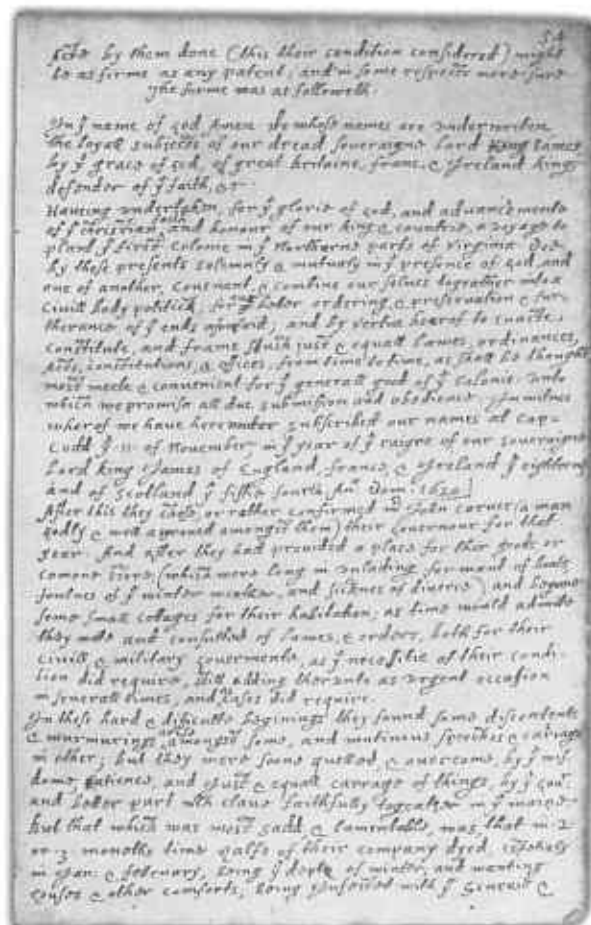 54
acte by them done (this their condition considered) might
be as firme as any patent; and in some respects more sure.
The forme was as followeth.
In yͤ name of god Amen. We whose names are underwriten,
the loyall subjects of our dread soveraigne Lord King James
by yͤ grace of god, of great Britaine, franc, & Ireland king,
defendor of yͤ faith, &c
Haveing undertaken, for yͤ glorie of god, and advancemente
of yͤ christian faith and honour of our king & countrie, a voyage to
plant yͤ first colonie in yͤ Northerne parts of Virginia. Doe
by these presents solemnly & mutualy in yͤ presence of god, and
one of another, covenant, & combine our selves togeather into a
civill body politick; for yͤ better ordering, & preservation & fur-
therance of yͤ ends aforesaid; and by vertue hearof to enacte,
constitute, and frame shuch just & equall lawes, ordinances,
Acts, constitutions, & offices, from time to time, as shall be thought
most meete & convenient for yͤ generall good of yͤ Colonie: unto
which we promise all due submission and obedience. In witnes
wherof we have hereunder subscribed our names at Cap-
Codd yͤ ·11· of November, in yͤ year of yͤ raigne of our soveraigne
Lord king James of England, franc, & Ireland yͤ eighteenth
and of Scotland yͤ fiftie fourth. Anº: Dom. 1620.
After this they chose, or rather confirmed mʳ John carver (a man
godly & well approved amongst them) their Governour for that
year. And after they had provided a place for their goods, or
comone store, (which were long in unlading for want of boats,
foulnes of yͤ winter weather, and sicknes of diverce) and begune
some small cottages for their habitation; as time would admitte
they mette and consulted of lawes, & orders, both for their
civill & military Govermente, as yͤ necessitie of their condi-
tion did require, still adding therunto as urgent occasion
in severall times, and as cases did require.
In these hard & difficulte beginings they found some discontents
& murmurings arise amongst some, and mutinous speeches & carriags
in other; but they were soone quelled, & overcome, by yͤ wis-
dome, patience, and just & equall carrage of things, by yͤ Govʳ
and better part wᶜʰ clave faithfully togeather in yͤ maine.
But that which was most sadd, & lamentable, was, that in 2
or 3 moneths time halfe of their company dyed, espetialy
in Jan: & february, being yͤ depth of winter, and wanting
houses & other comforts; being Infected with yͤ Scurvie &